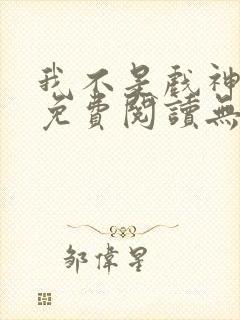 我不是戲神
免費閱讀無
鄒偉星